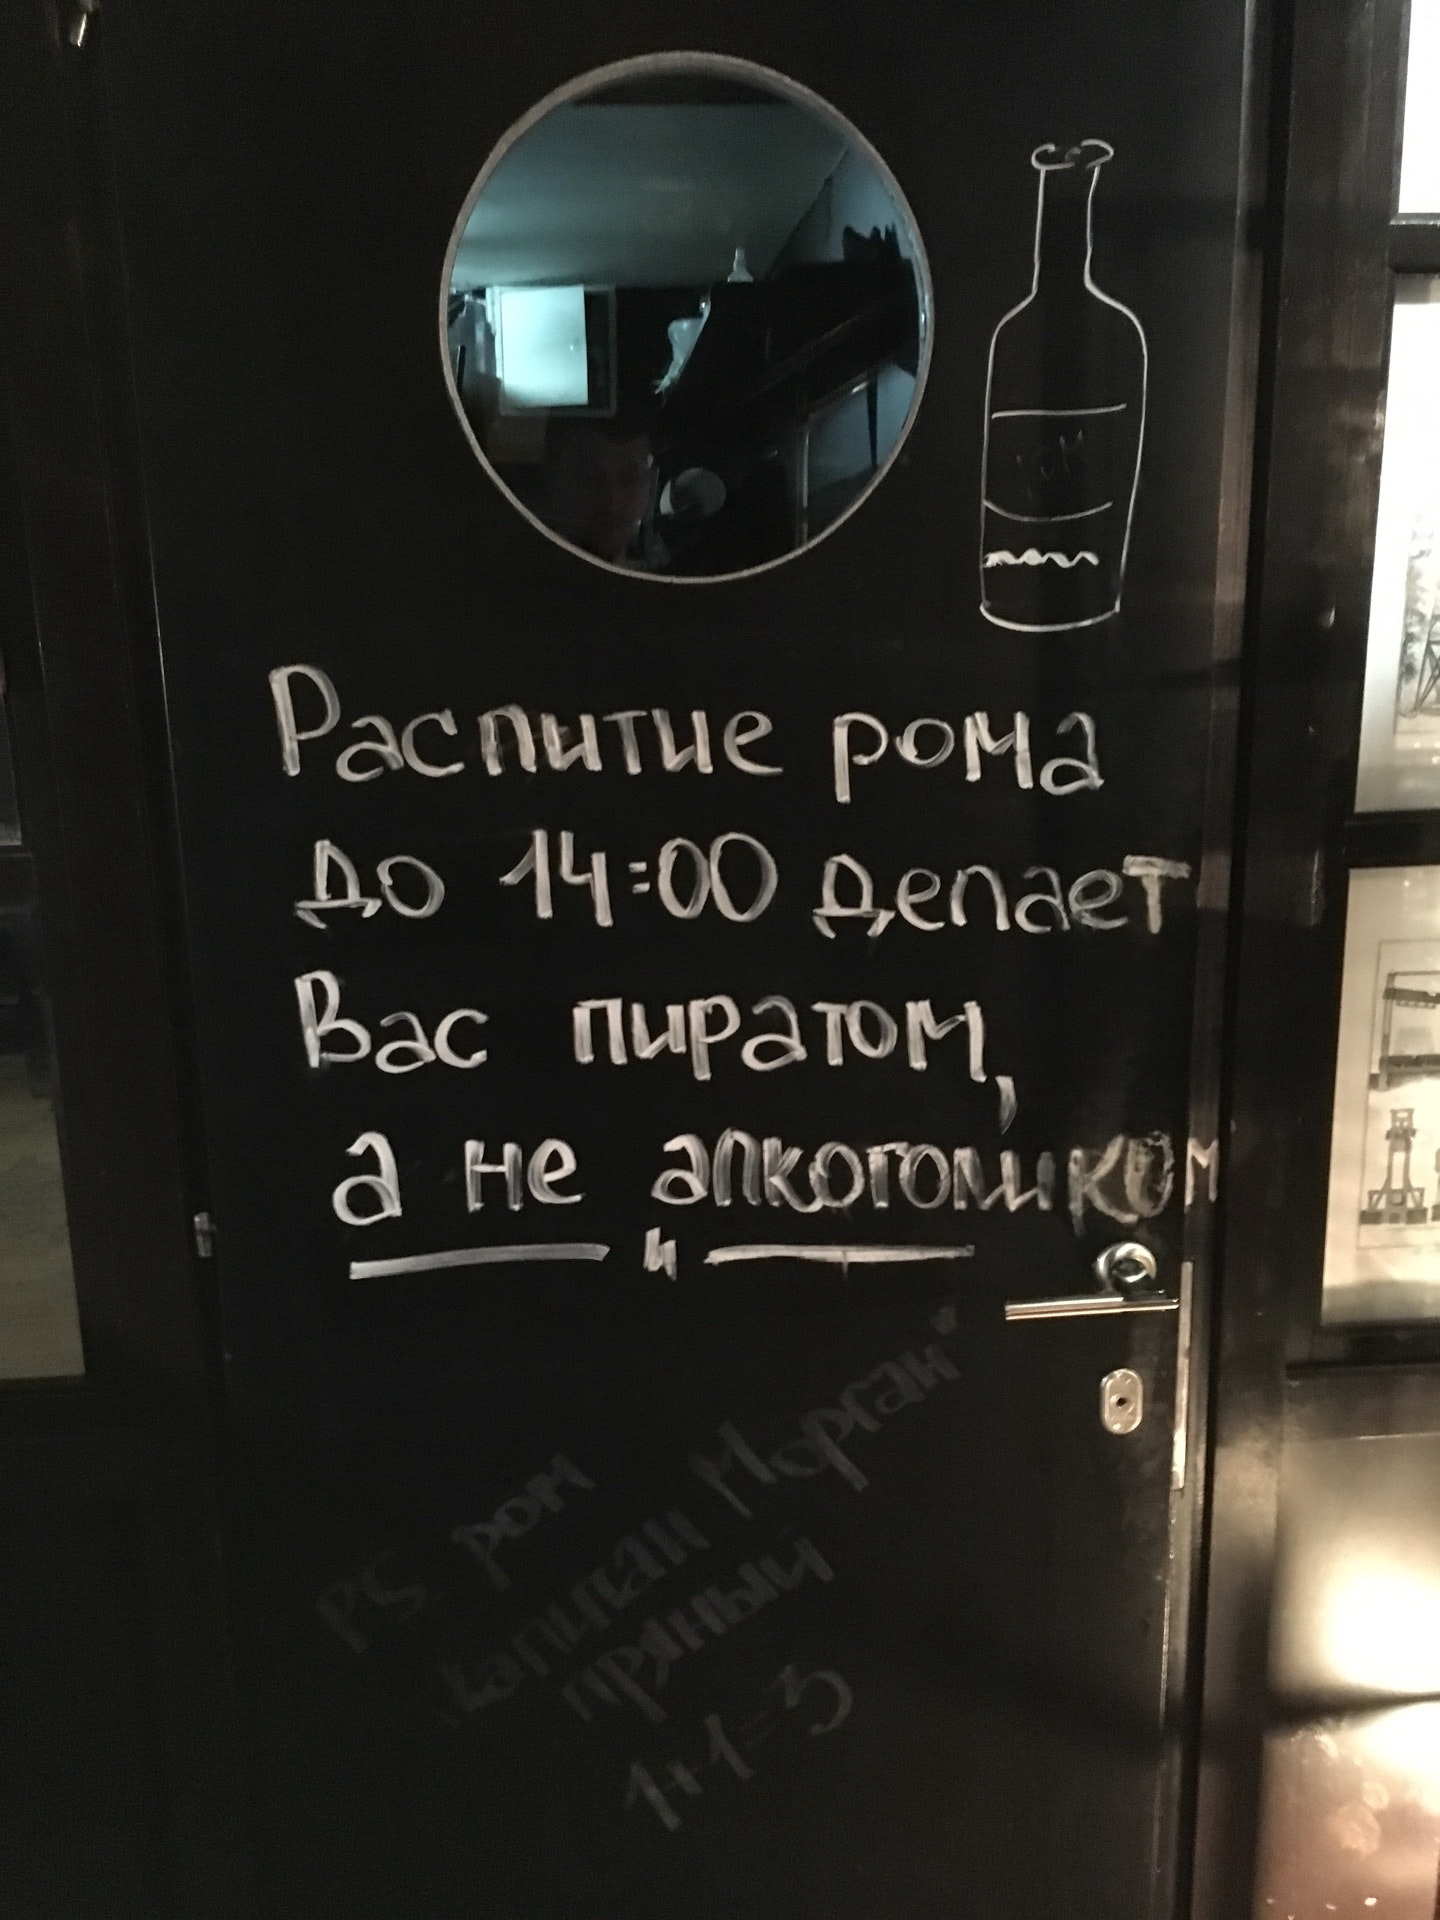 Распитие рома
до 14:00 делает
Вас пиратом,
а не алкоголиком
P.S. ром
"Капитан Морган"
пряный
1+1=3